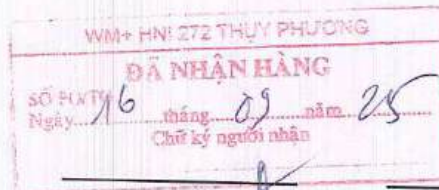 WM+ HNI 272 THỤY PHƯƠNG
ĐÃ NHẬN HÀNG
SỐ PO/TO
Ngày 16 tháng 09 năm 25
Chữ ký người nhận